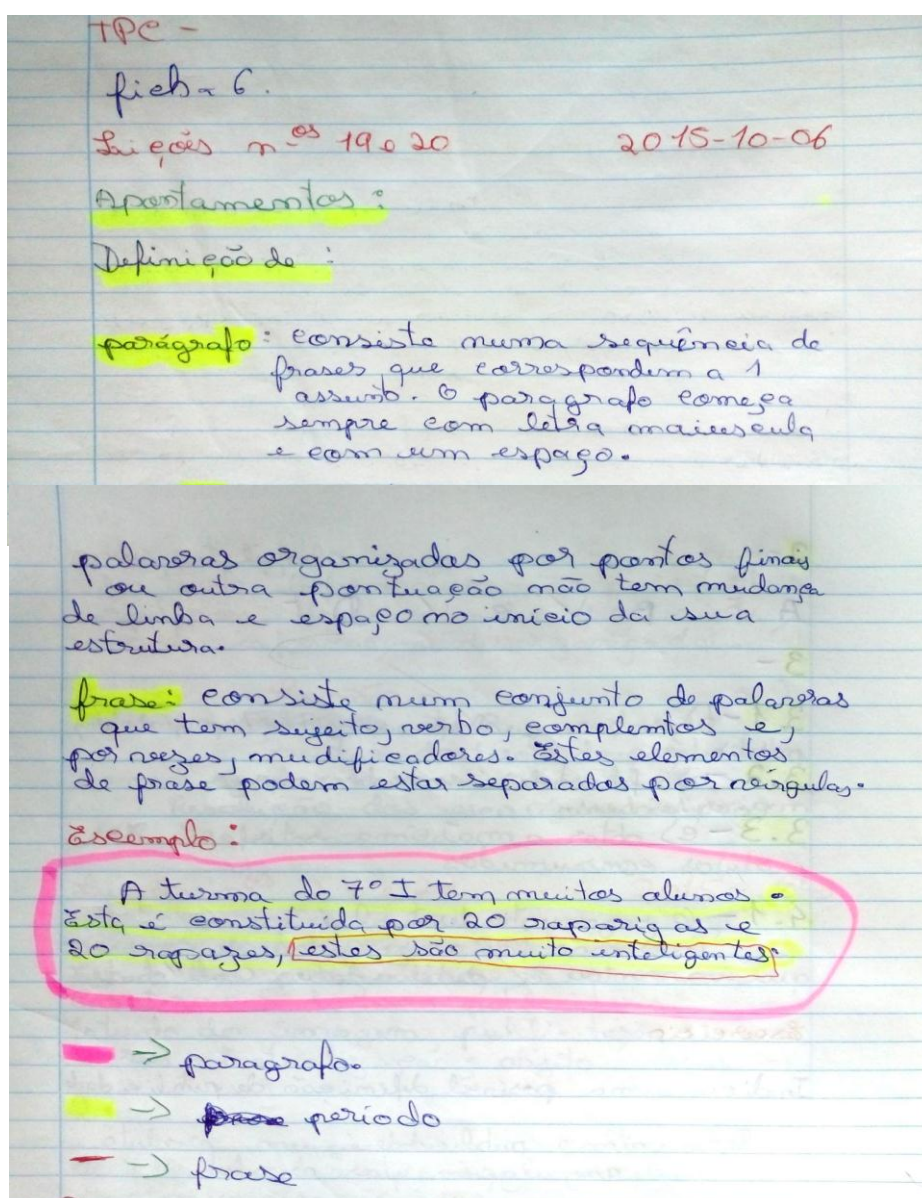 TPC -
ficha 6.
Lições n.os 19 e 20 2015-10-06
Apontamentos:
Definição de :
parágrafo: consiste numa sequência de
frases que correspondem a 1
assunto. O paragrafo começa
sempre com letra maiuscula
e com um espaço.
palavras organizadas por pontos finais
ou outra pontuação não tem mudança
de linha e espaço no inicio da sua
estrutura.
frase: consiste num conjunto de palavras
que tem sujeito, verbo, complemtos e,
por vezes, mudificadores. Estes elementos
de frase podem estar separados por vírgulas.
Exemplo:
A turma do 7º I tem muitos alunos.
Esta é constituída por 20 raparigas e
20 rapazes, estes são muito inteligentes.
-> paragrafo.
-> período
-> frase